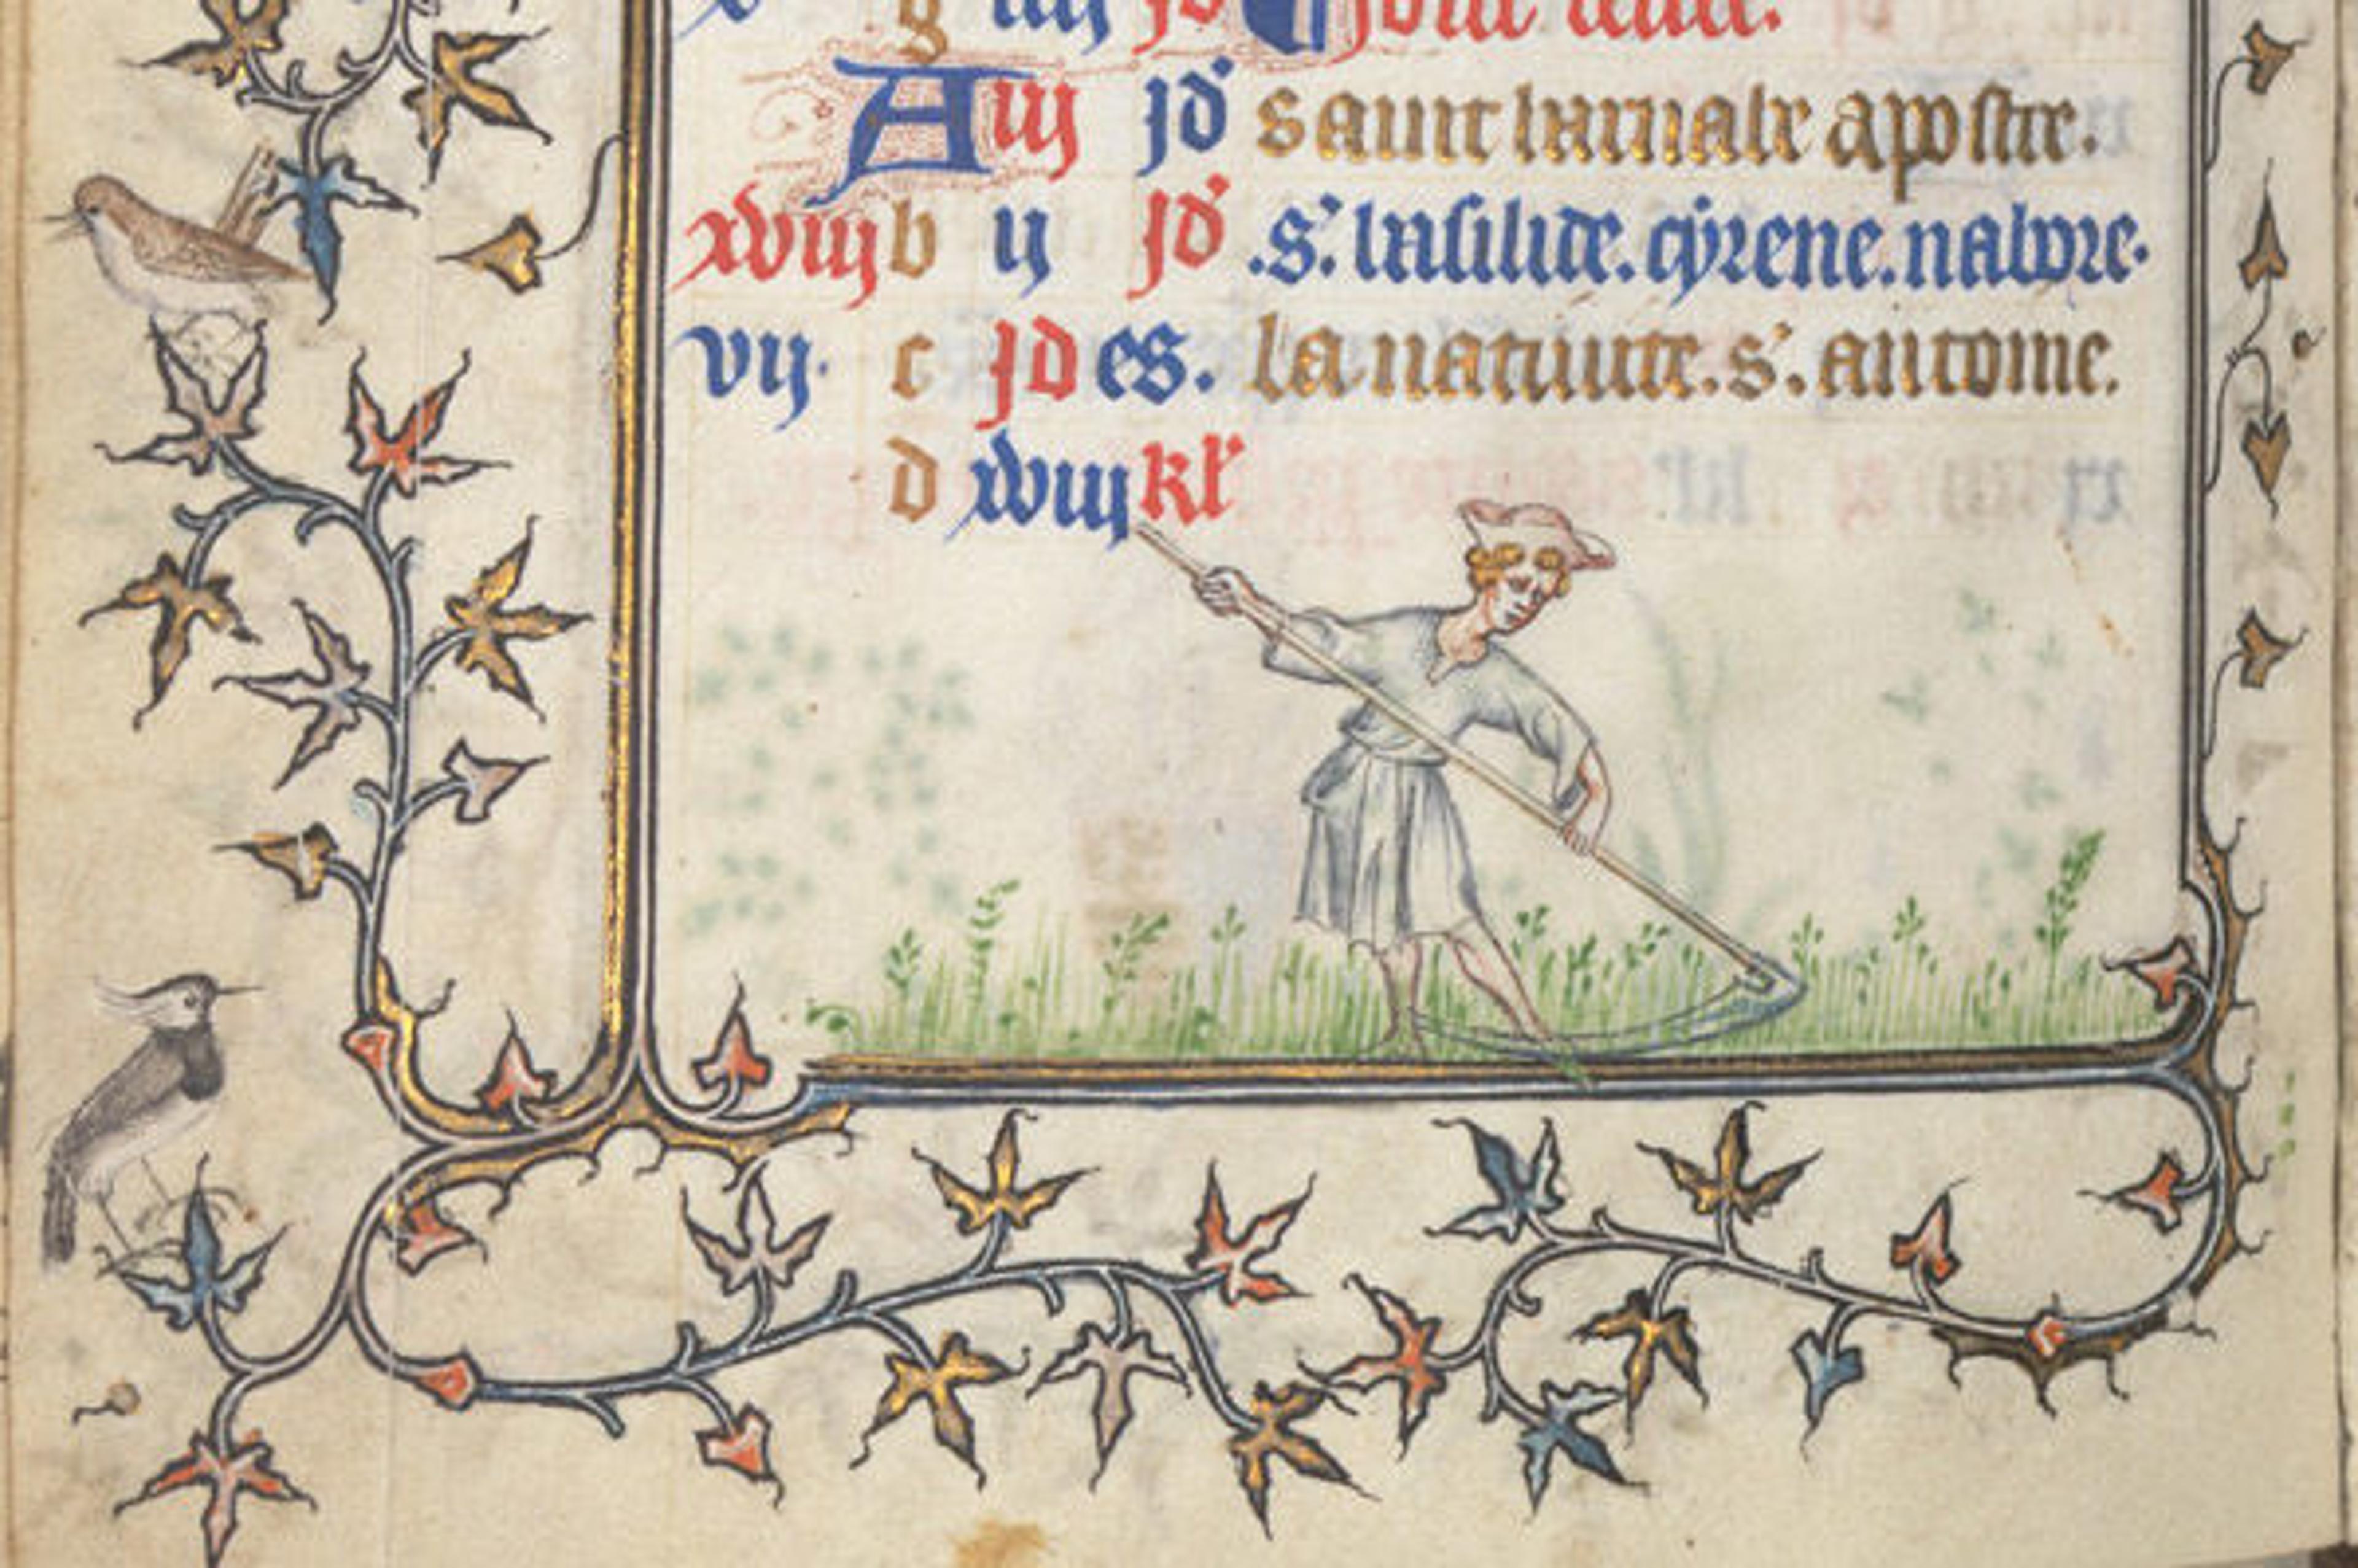 A iij jd' saint barnabe apostre.
xviij b ij jd' .s'. basilide. cyrene. nabore.
vij. c jdes. la natiuite. s'. antoine.
d xviij kl'